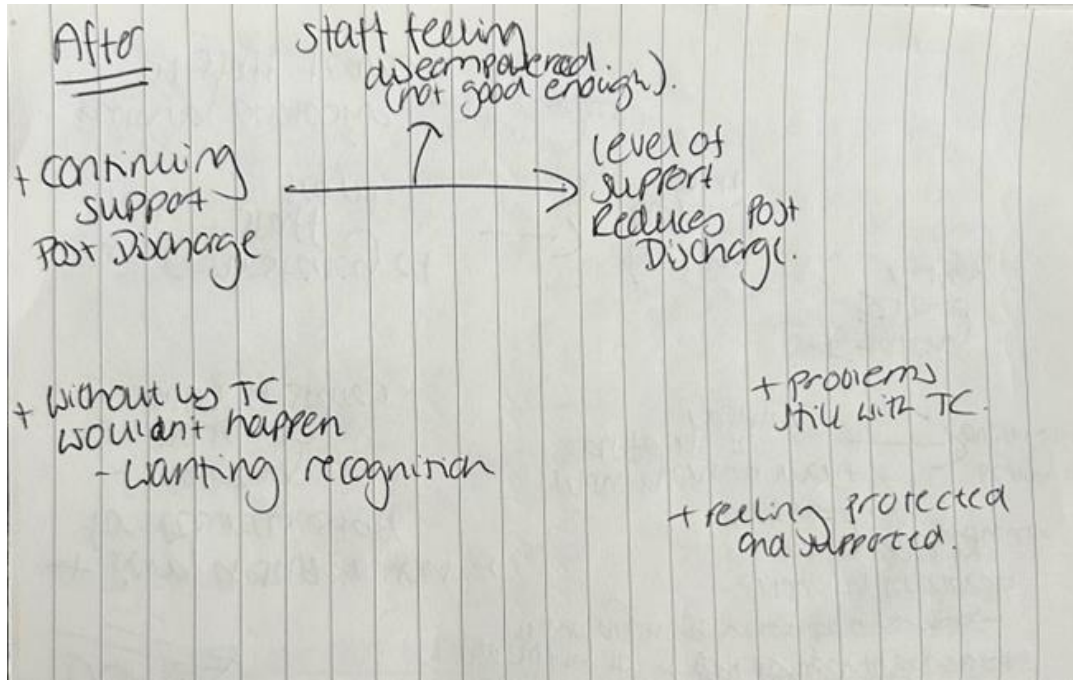 After
staff feeling
disempowered.
(not good enough).
+ continuing
support
Post Discharge
level of
support
Reduces Post
Discharge.
+ without us TC
wouldn't happen
- wanting recognition
+ problems
still with TC.
+ feeling protected
and supported.